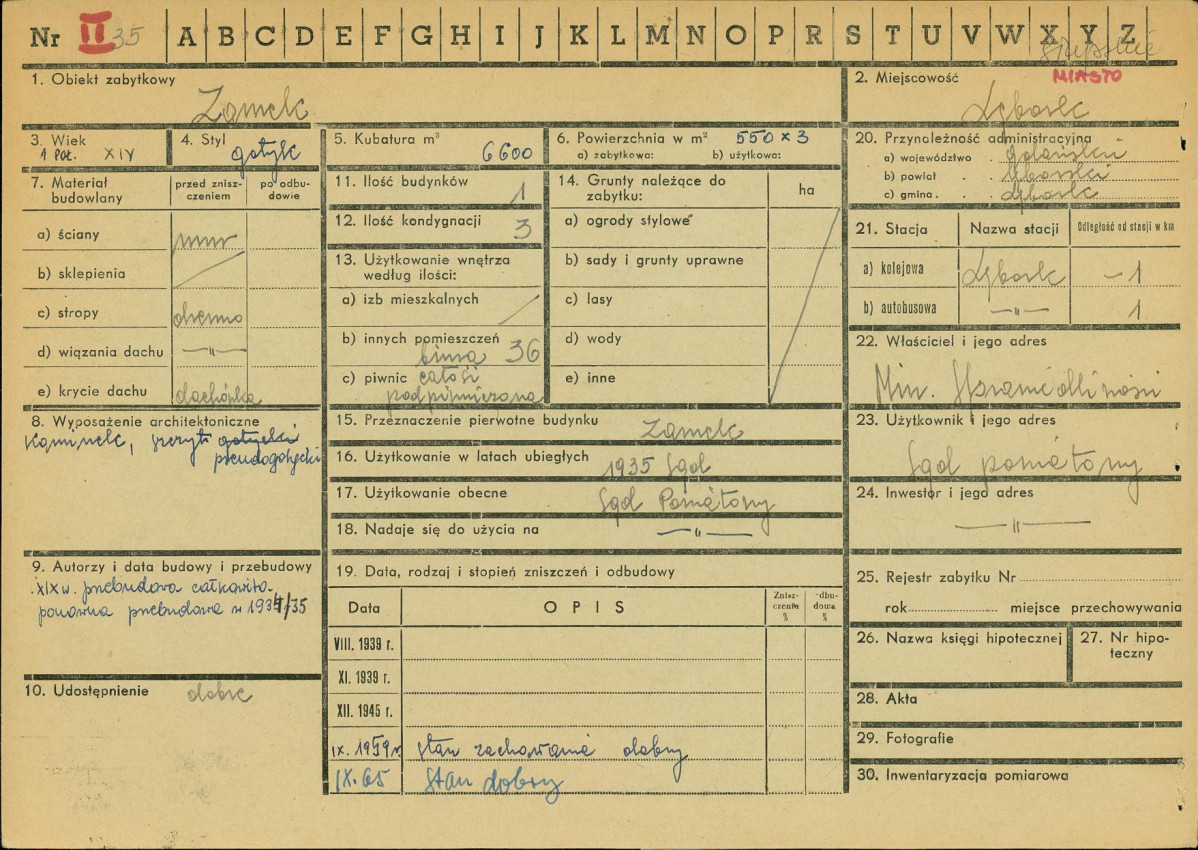 Nr II 35 A B C D E F G H I J K L M N O P R S T U V W X Y Z
słupskie
MIASTO
1. Obiekt zabytkowy
Zamek
2. Miejscowość
Lębork
3. Wiek
1 poł. XIV
4. Styl
gotyk
5. Kubatura m³
6600
6. Powierzchnia w m² 550 x 3
a) zabytkowa: b) użytkowa:
7. Materiał budowlany
przed zniszczeniem
po odbudowie
a) ściany mur
b) sklepienia
c) stropy drewno
d) wiązania dachu —"—
e) krycie dachu dachówka
8. Wyposażenie architektoniczne
Kominek, szczyty gotyckie
pseudogotycki
9. Autorzy i data budowy i przebudowy
XIX w. przebudowa całkowita.
ponowna przebudowa w 1934/35
10. Udostępnienie dobre
11. Ilość budynków 1
12. Ilość kondygnacji 3
13. Użytkowanie wnętrza
według ilości:
a) izb mieszkalnych
b) innych pomieszczeń
biura 36
c) piwnic całość
podpiwniczona
14. Grunty należące do
zabytku:
ha
a) ogrody stylowe
b) sady i grunty uprawne
c) lasy
d) wody
e) inne
15. Przeznaczenie pierwotne budynku Zamek
16. Użytkowanie w latach ubiegłych 1935 Sąd
17. Użytkowanie obecne Sąd Powiatowy
18. Nadaje się do użycia na —"—
19. Data, rodzaj i stopień zniszczeń i odbudowy
Data
OPIS
Zniszczenia %
Odbudowa %
VIII. 1939 r.
XI. 1939 r.
XII. 1945 r.
IX. 1959 r. Stan zachowania dobry
IX. 65 Stan dobry
20. Przynależność administracyjna
a) województwo gdańskie
b) powiat lęborski
c) gmina Lębork
21. Stacja
Nazwa stacji
Odległość od stacji w km
a) kolejowa Lębork ~1
b) autobusowa —"— 1
22. Właściciel i jego adres
Min. Sprawiedliwości
23. Użytkownik i jego adres
Sąd powiatowy
24. Inwestor i jego adres
—"—
25. Rejestr zabytku Nr
rok miejsce przechowywania
26. Nazwa księgi hipotecznej
27. Nr hipoteczny
28. Akta
29. Fotografie
30. Inwentaryzacja pomiarowa